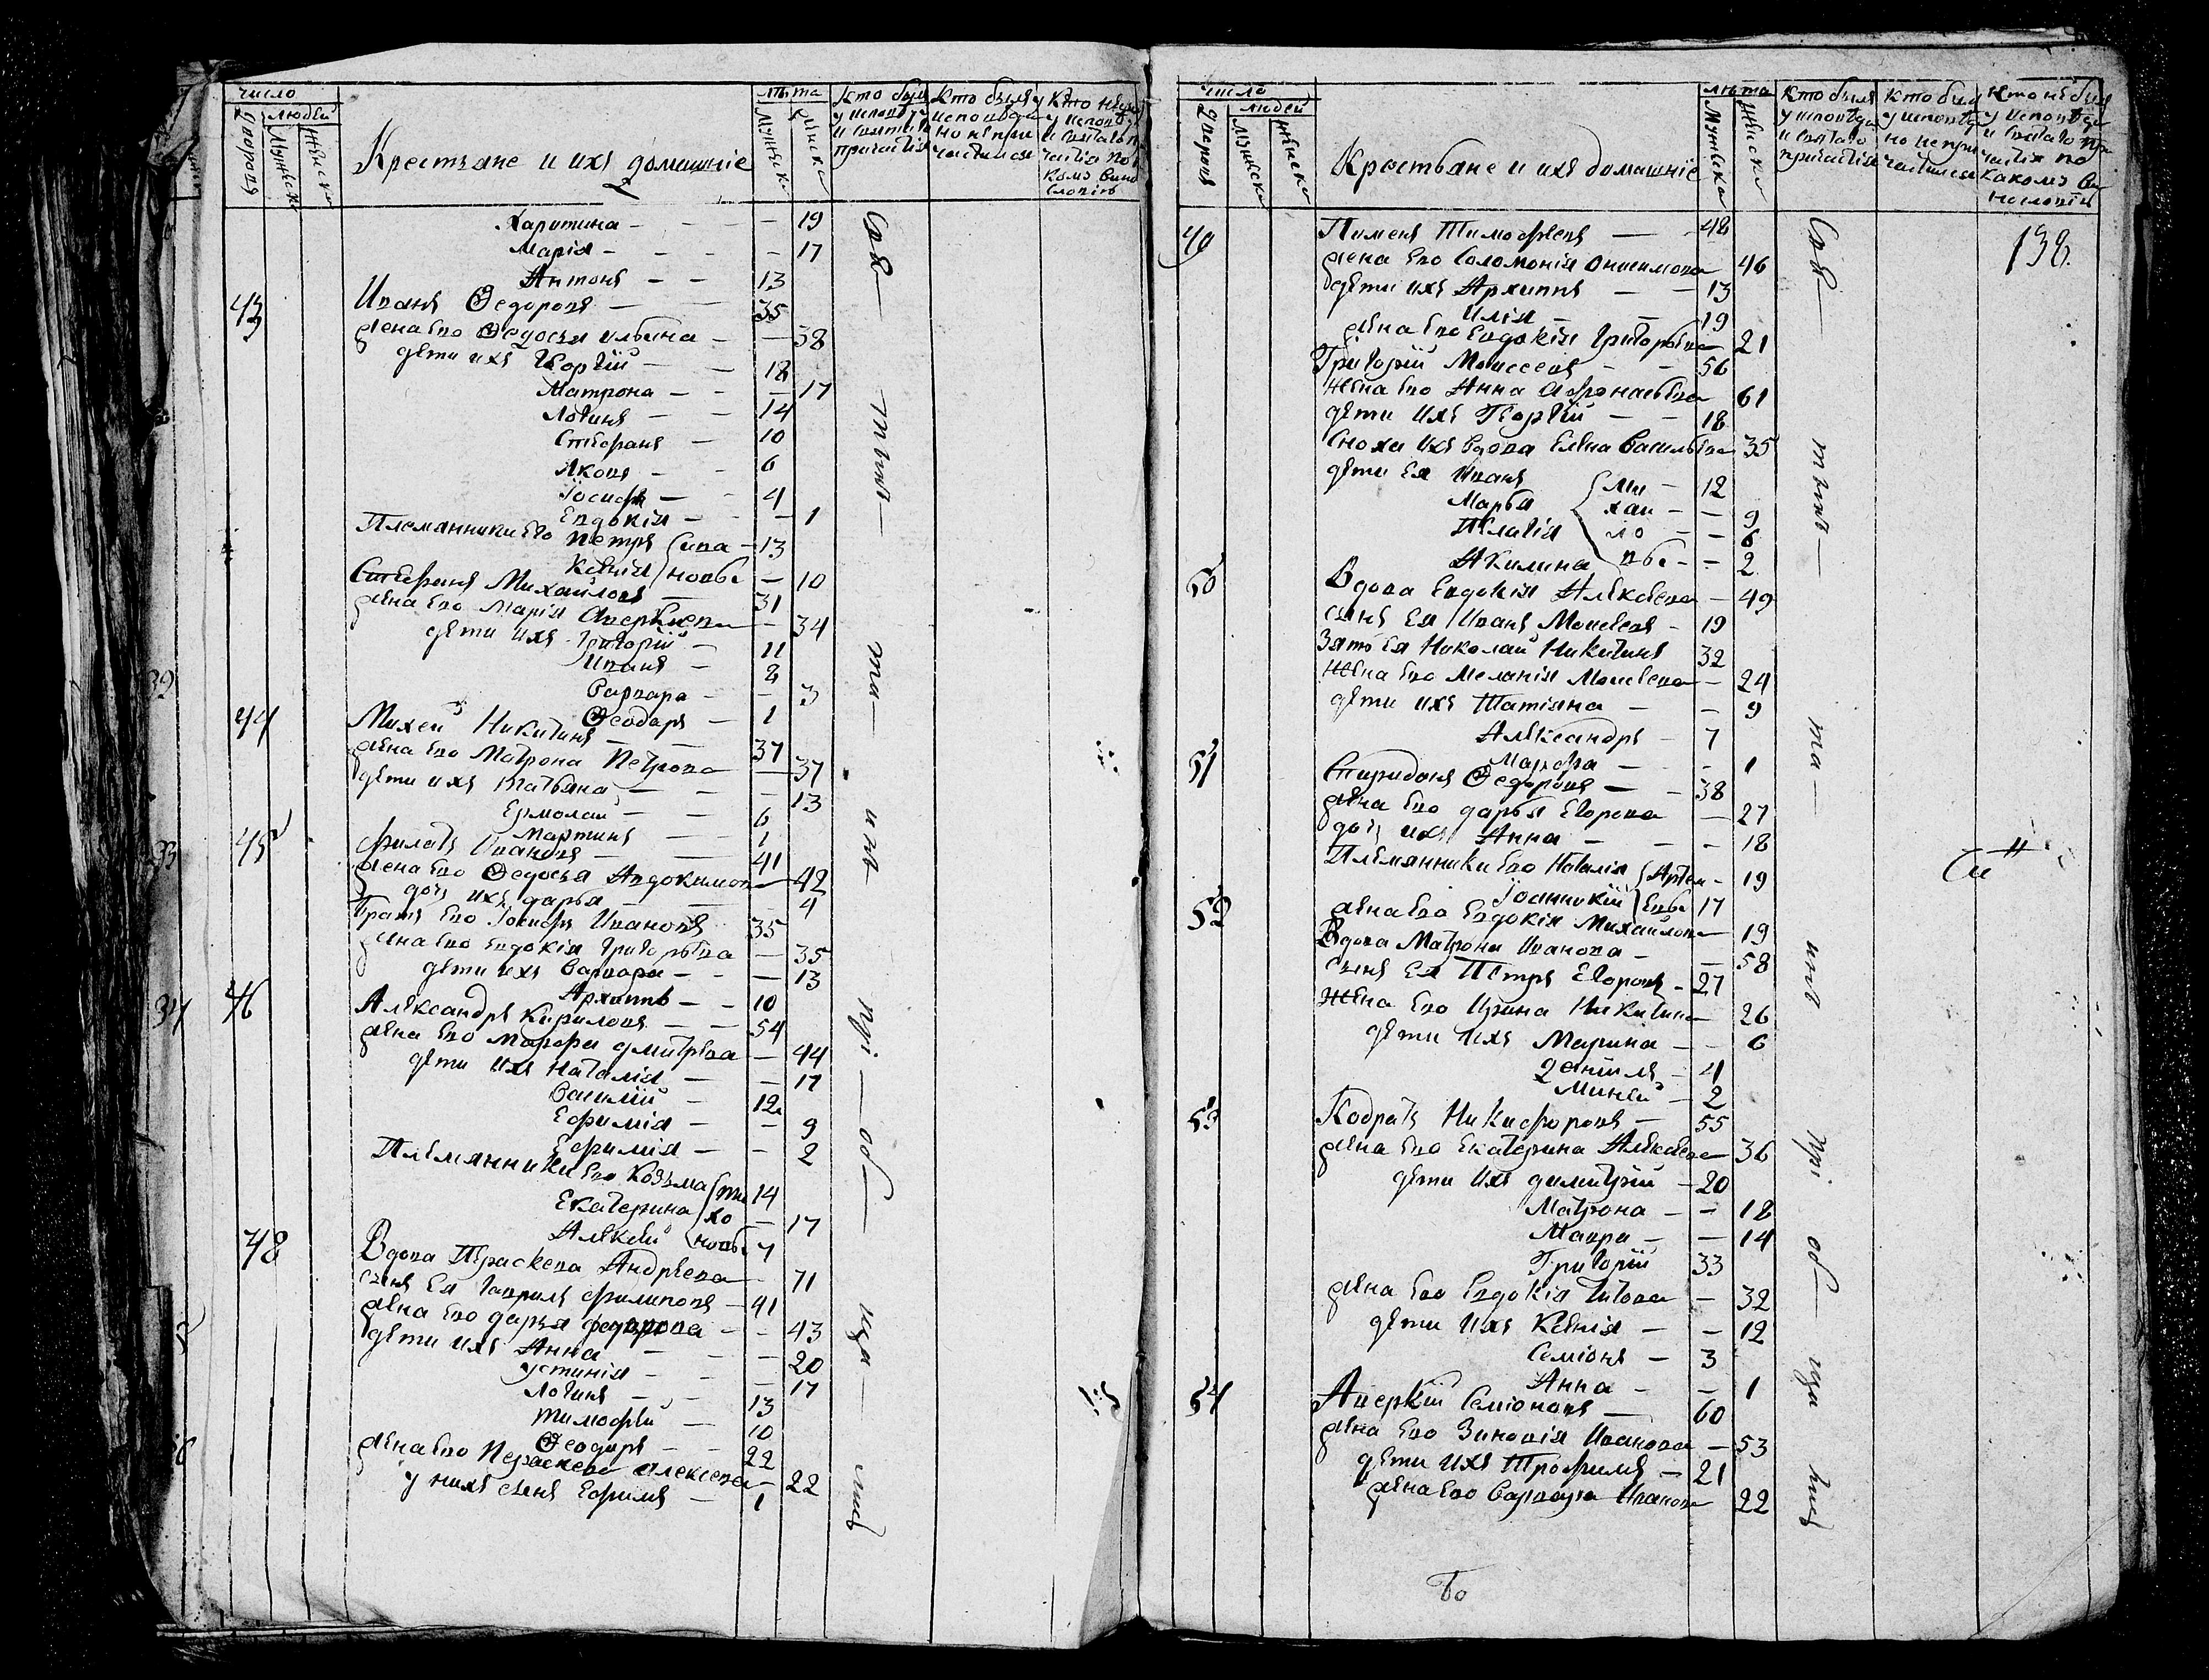 число
людей
Дворовъ
Мужеска
Женска
Крестьяне и ихъ домашніе
лѣта
Мужеска
Женска
Кто были у исповѣди и святаго причастія
Кто были у исповѣди но не причастились
Кто не были у исповѣди и святаго причастія по какому винословію
Харитина – – – – 19
Марія – – – – 17
Антонъ – – 13
43 Иванъ Ѳедоровъ – – 35
жена ево Ѳедосья ильина – – 38
дети ихъ Георгій – – 18
Матрона – – – 17
Логинъ – – 14
Стефанъ – 10
Яковъ – – 6
Іосифъ – – 4
Евдокія – – – 1
Племянники ево Петръ Сила – 13
Ксенія новы – 10
Стефанъ Михайловъ – 31
жена ево Марія Аверкиева – 34
дети ихъ Григорій – 11
Иванъ – 8
Варвара – – 3
Ѳеодоръ – 1
44 Михей Никитинъ – – 37
жена ево Матрона Петрова – 37
дети ихъ Татьяна – – – 13
Ермолай – – 6
Мартинъ – – 1
45 Филатъ Ивановъ – – 41
жена ево Ѳедосья Авдокимова – 42
дочь ихъ дарья – – – 4
братъ ево Іосифъ Ивановъ 35
жена ево Евдокія Григорьева – 35
дети ихъ Варвара – – – 13
Архипъ – – 10
46 Александръ Кириловъ – – 54
жена ево Марфа дмитрева – 44
дети ихъ Наталія – – 17
Василій – 12
Ефимія – – 9
Ефимія – – 2
Племянники ево Козьма ти 14
Екатерина хо – 17
Алексей новы 7
48 Вдова Параскева Андрѣева – 71
сынъ Ея Гаврилъ Филиповъ – 41
жена ево дарья федорова – – 43
дети ихъ Анна – – 20
устинія – – – 17
Логинъ – – 13
Тимофей – 10
Ѳеодоръ – – 22
жена ево Параскева алексева – 22
у нихъ сынъ Ефимъ – 1
число
людей
Дворовъ
Мужеска
Женска
Крестьяне и ихъ домашніе
лѣта
Мужеска
Женска
Кто были у исповѣди и святаго причастія
Кто были у исповѣди но не причастились
Кто не были у исповѣди и святаго причастія по какому винословію
138.
49 Пименъ Тимофеевъ – – 48
жена ево Соломонія Онисимова 46
дети ихъ Архиппъ – – 13
Илія – – 19
жена ево Евдокія Григорьева 21
Григорій Моисеевъ – – 56
жена ево Анна Афонасьева 61
дети ихъ Георгій – – 18
Сноха ихъ вдова Елена Васильева 35
дети Ея Иванъ Ми – 12
Марья хаи – – 9
Пелагія ло – – 6
Акилина вы – – 2
50 Вдова Евдокія Алексеева – 49
сынъ Ея Иванъ Моисеевъ – 19
Зять Ея Николай Никитинъ 32
жена ево Меланія Моисеева – 24
дети ихъ Татіяна – – 9
Александръ – 7
Марфа – – 1
51 Спиридонъ Ѳедоровъ – – 38
жена ево дарья Егорова – 27
дочь ихъ Анна – – – 18
Племянники ево Наталія Артем – 19
Іоанникій евы 17
жена ево Евдокія Михайлова – 19
52 Вдова Матрона Иванова – – 58
сынъ Ея Петръ Егоровъ – 27
жена ево Ирина Никитина – 26
дети ихъ Марина – – 6
Даніилъ – 4
Миней – 2
53 Кодратъ Никифоровъ – 55
жена ево Екатерина Алексеева 36
дети ихъ димитрій – 20
Матрона – – 18
Мавра – – 14
Григорій 33
жена ево Евдокія Титова – 32
дети ихъ Ксенія – – 12
Семіонъ – 3
Анна – – 1
54 Аверкій Семіоновъ – 60
жена ево Зиновія Иванова – 53
дети ихъ Трофимъ – 21
жена ево Варвара Иванова 22